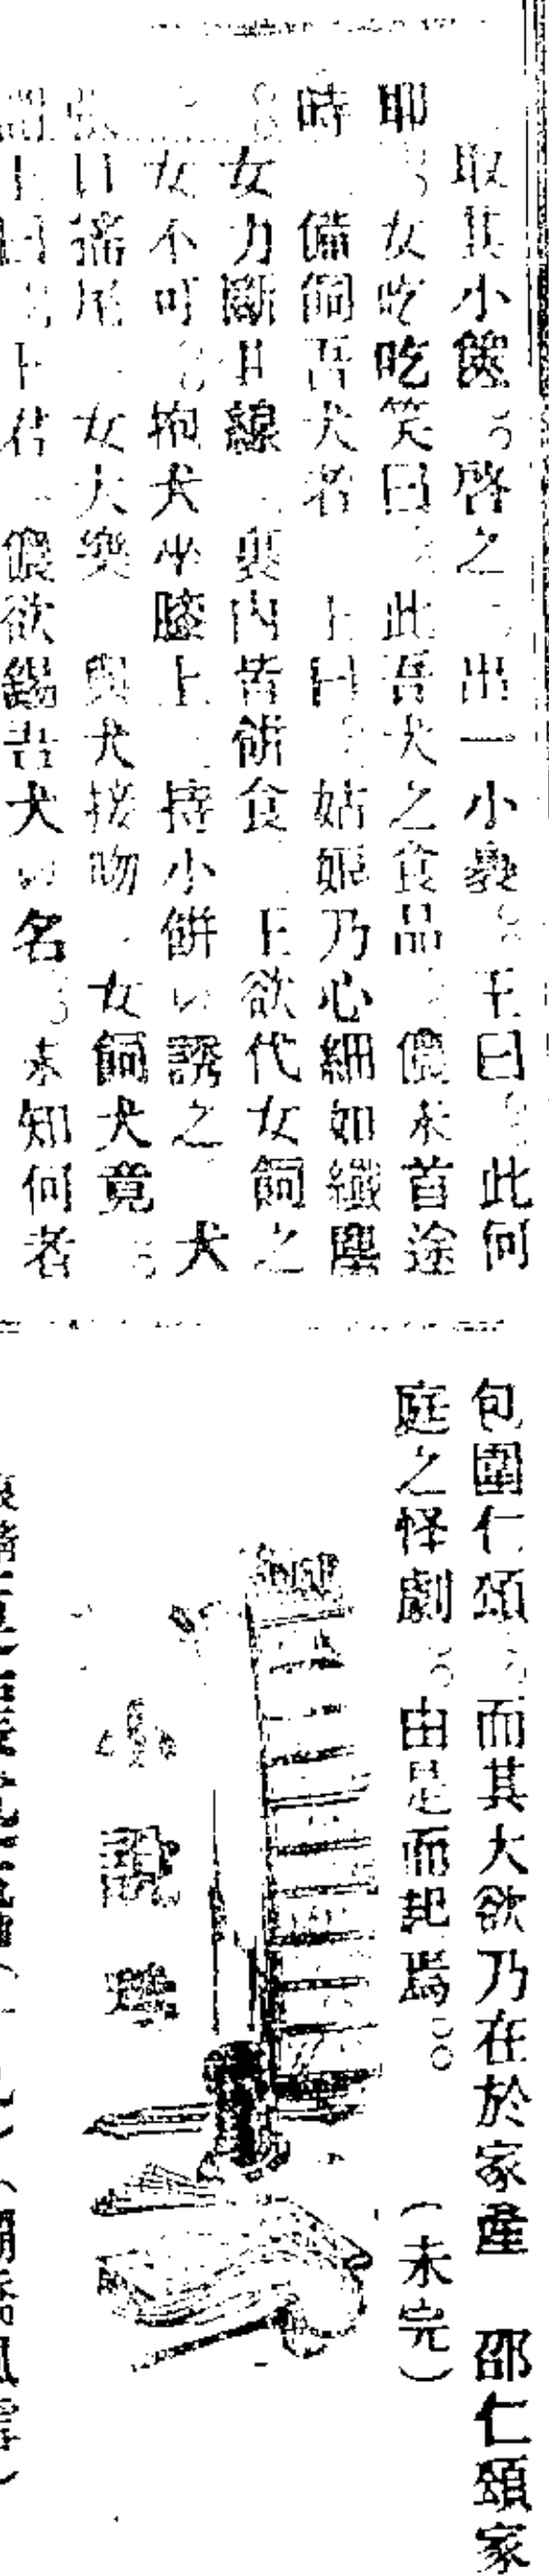 取其小篋。啓之。出一小裹。王曰。此何
耶。女吃吃笑曰。此吾犬之食品。儂未首途
時。備飼吾犬者。王曰。姑姬乃心細如纖塵
女力斷其線。裹內皆餅食。王欲代女飼之
女不可。抱犬坐膝上。持小餅以誘之。犬
口搖尾。女大樂。與犬接吻。女飼犬竟。
王曰。王君。儂欲錫吾犬以名。未知何者
包圍仁頌。而其大欲乃在於家產 邵仁頌家
庭之怪劇。由是而起焉。
(未完)
小說